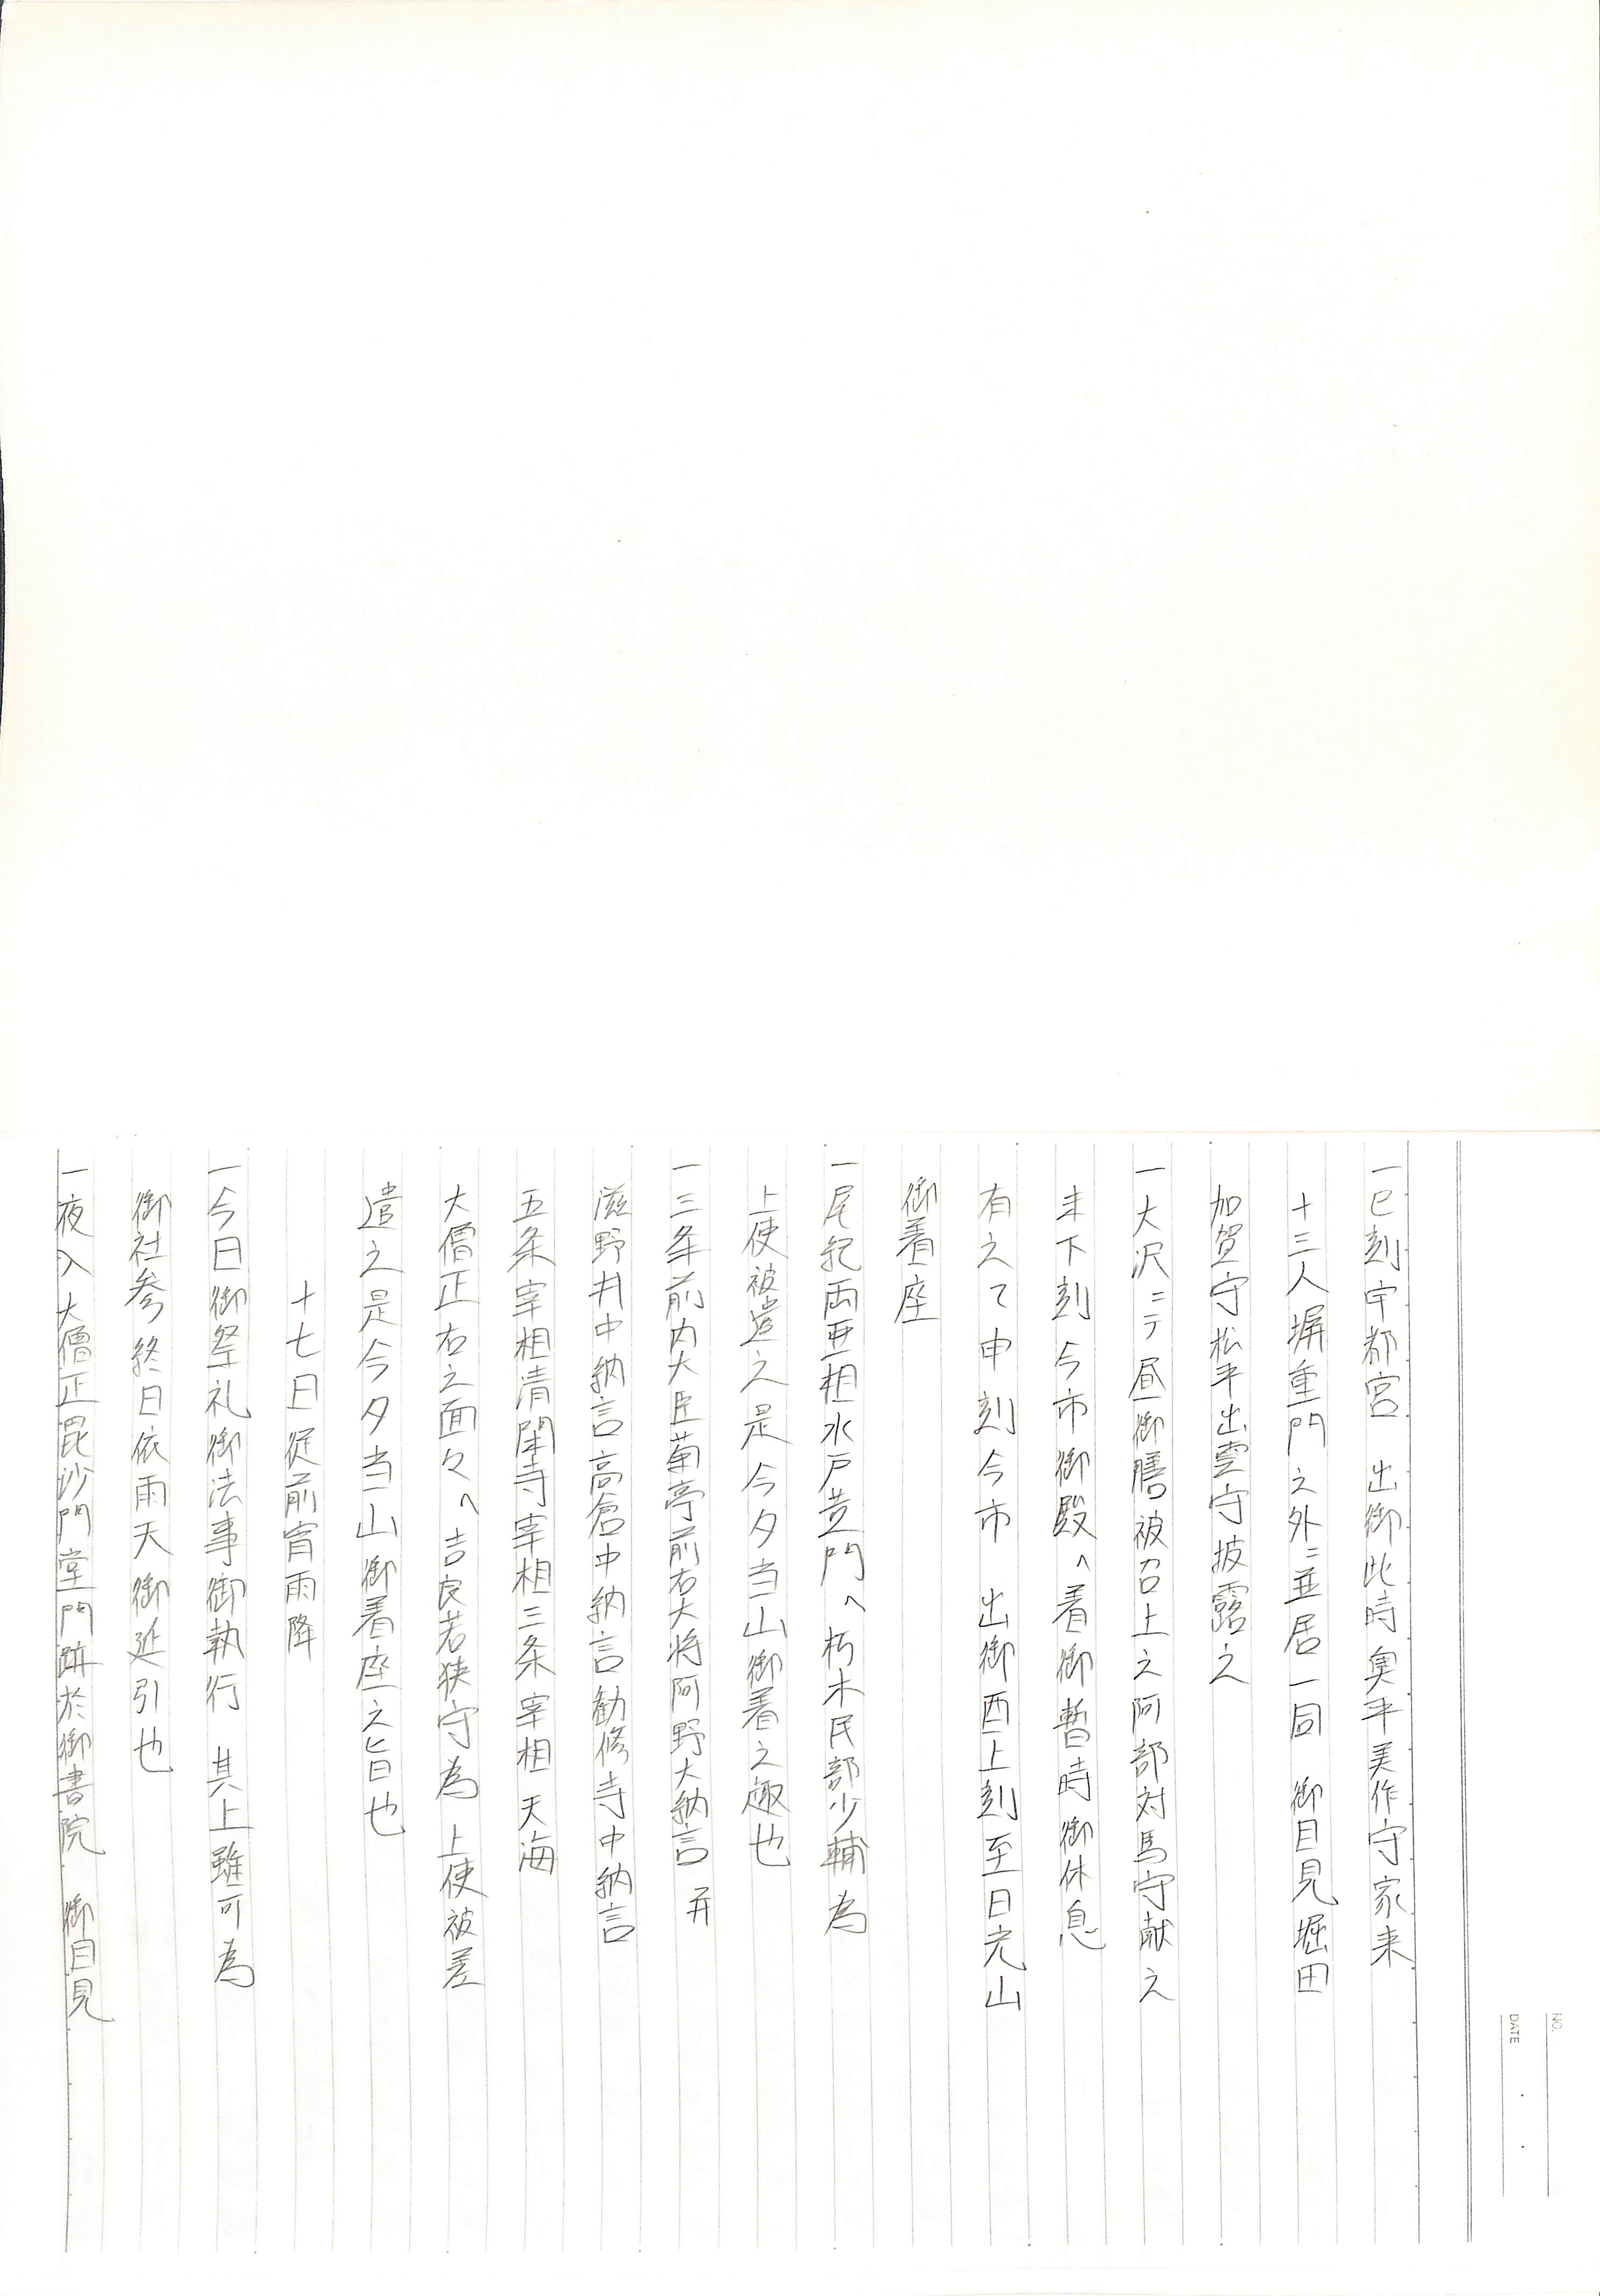 一巳刻宇都宮　出御此時奥平美作守家来
十三人塀重門之外ニ並居一同　御目見堀田
加賀守松平出雲守披露之
一大沢ニテ昼御膳被召上之阿部対馬守献之
未下刻今市御殿へ着御暫時御休息
有之て申刻今市　出御酉上刻至日光山
御着座
一尾紀両亜相水戸黄門へ朽木民部少輔為
上使被遣之是今夕当山御着之趣也
一三条前内大臣菊亭前右大将阿野大納言并
滋野井中納言高倉中納言勧修寺中納言
五条宰相清閑寺宰相三条宰相天海
大僧正右之面々へ吉良若狭守為　上使被差
遣之是今夕当山御着座之旨也
十七日従前宵雨降
一今日御祭礼御法事御執行　其上雖可為
御社参終日依雨天御延引也
一夜入大僧正毘沙門堂門跡於御書院　御目見
NO.
DATE